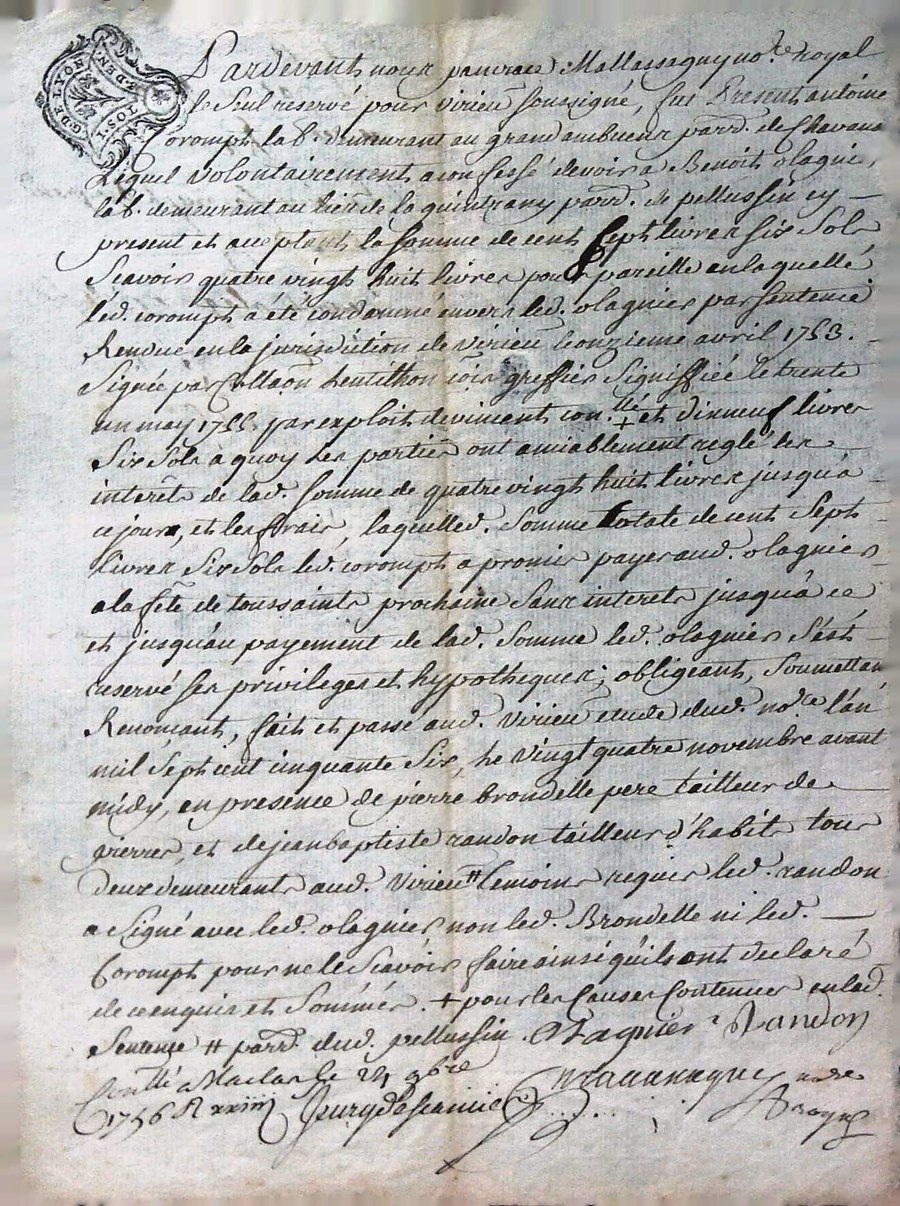 G. DE LYON
DEN.
Pardevant nous pancrace Mallassagny no.re royal
le Seul reservé pour virieu soussigné, fut Present antoine
Corompt lab.r demeurant au grand ambueux parr.e de Chavana
Lequel volontairement a confessé devoir a Benoit olagnie,
lab.r demeurant au lieu de la quintrany parr.e de pellussin cy
present et acceptant la Somme de cent Sept livres six Sols
Scavoir quatre vingt huit livres pour pareille en laquelle
led. corompt a été condamné envers led. olagnier par sentence
Rendue en la jurisdiction de virieu le onzieme avril 1753.
Signée par Collaon hentilhon greffier Signiffiée le trente
un may 1755 par exploit de viment con.llé + et dixneuf livres
Six Sols a quoy les parties ont amiablement reglé les
interets de lad. Somme de quatre vingt huit livres jusqu'a
ce jour, et les frais, laquelled. Somme totale de cent Sept
livres Six Sols led. corompt a promis payer aud. olagnier
a la fête de toussaints prochaine Sans interets jusqu'a ce
et jusqu'au payement de lad. Somme led. olagnier s'est
reservé ses privileges et hypotheques; obligeant, Soumettan
Renonçant, fait et passé aud. Virieu etude dud. no.re l'an
mil Sept cent cinquante Six, le vingt quatre novembre avant
midy, en presence de pierre brondelle pere tailleur de
pierres, et de jean baptiste randon tailleur d'habits tous
deux demeurants aud. Virieu # temoins requis led. randon
a Signé avec led. olagnier non led. Brondelle ni led.
Corompt pour ne le Scavoir faire ainsé qu'ils ont declaré
de ce enquis et Sommés. + pour les Causes Contenues en lad.
Sentence # parr.e dud. pellussin. Olagnier Randon
Conllé a Maclas le 24 9bre
1756 R xxiiij